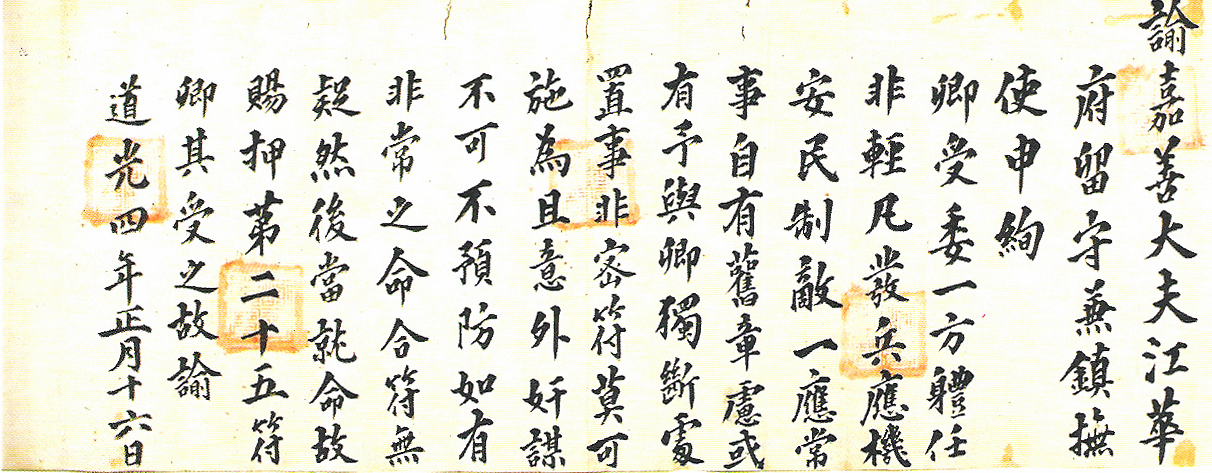 諭嘉善大夫江華
府留守兼鎮撫
使申絢
卿受委一方軆任
非軽凡發兵應機
安民制敵一應常
事自有舊章慮或
有予與卿獨斷處
置事非密符莫可
施為且意外奸謀
不可不預防如有
非常之命合符無
疑然後當就命故
賜押第二十五符
卿其受之故諭
道光四年正月十六日